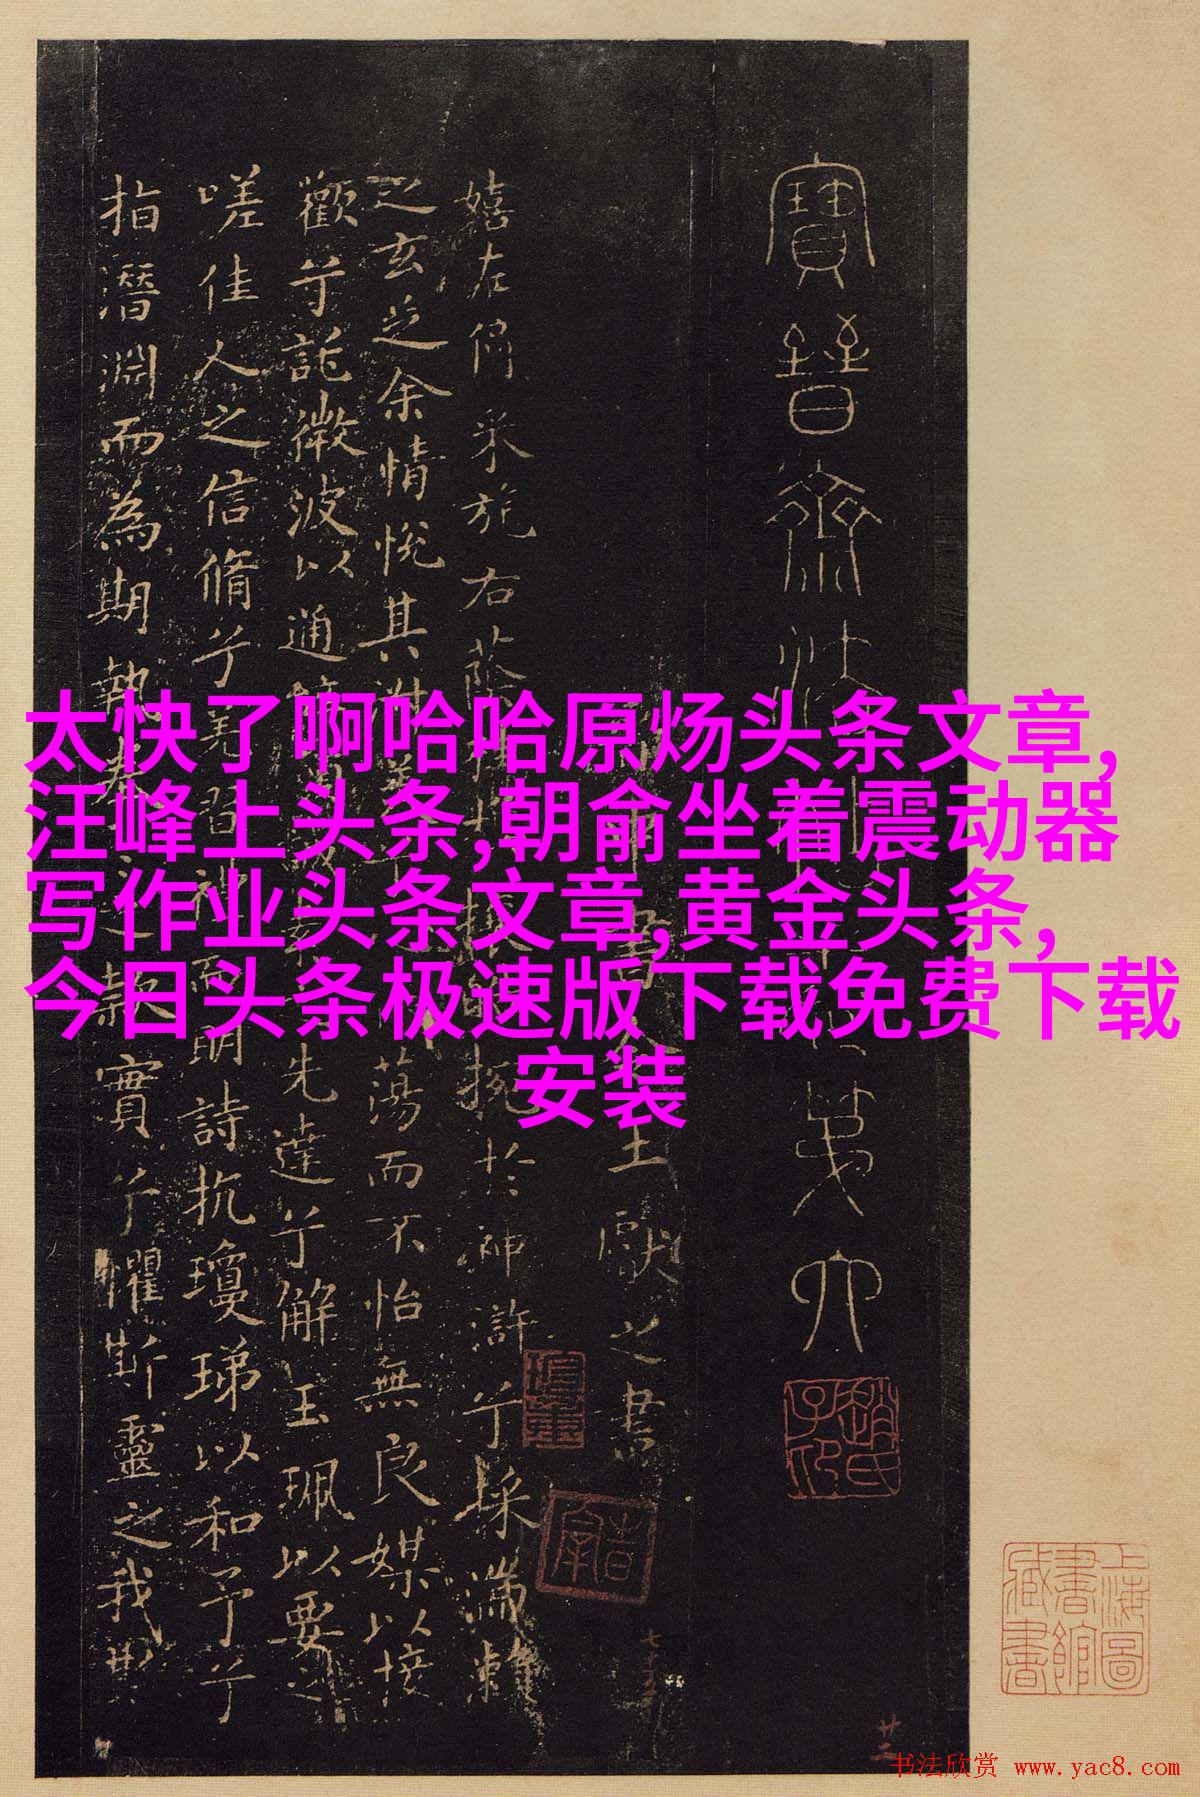 太快了啊哈哈原炀头条文章,
汪峰上头条,朝俞坐着震动器
写作业头条文章,黄金头条,
今日头条极速版下载免费下载
安装
寶晉齋法弟六
王獻之書
嬉左倚采旄右蔭捥於神滸兮採湍瀨
之玄芝余情悅其淑蕩而不怡無良媒以接
歡兮託微波以通先達兮解玉珮以要之
嗟佳人之信脩兮羌習禮而明詩抗瓊珶以和予兮
指潛淵而為期執實兮懼斯靈之我欺
上海圖書館藏書
书法欣赏 www.yac8.com